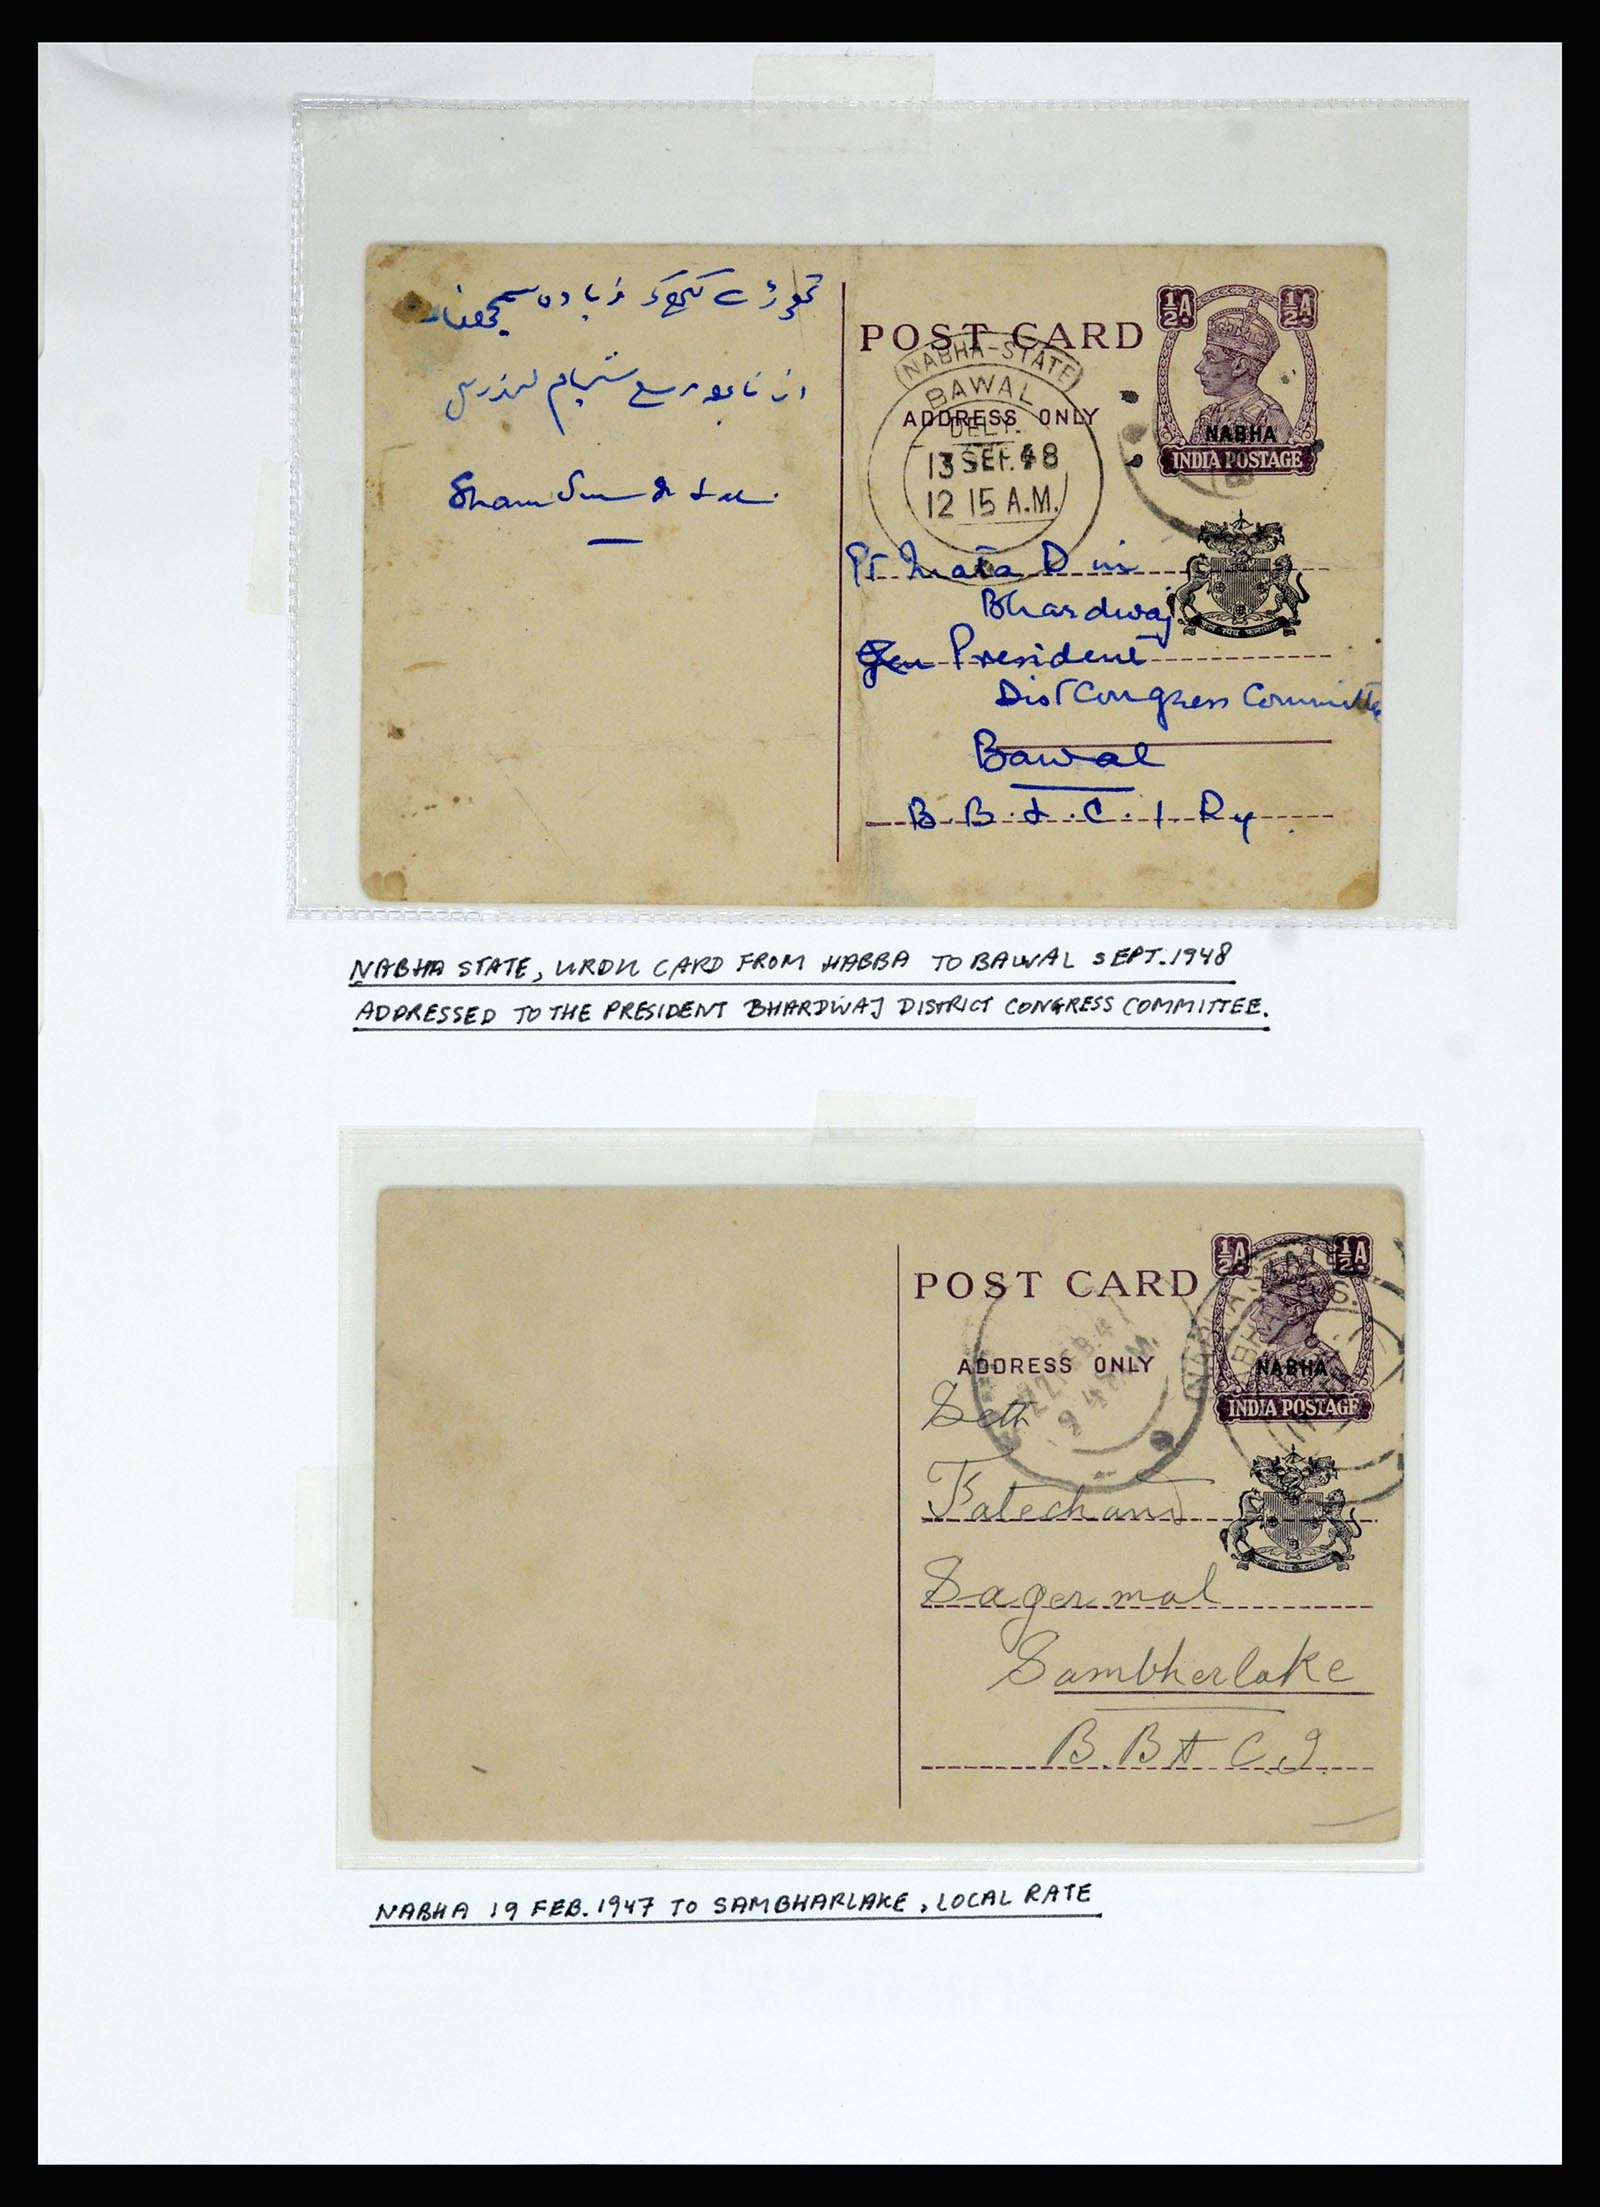 تھوڑے لکھے کو زیادہ سمجھنا
از نابھہ
Sham Sunder Lal
POST CARD
½A ½A
ADDRESS ONLY
NABHA
INDIA POSTAGE
NABHA-STATE
BAWAL
DELY.
13 SEP. 48
12 15 A.M.
Pt Mata Din
Bhardwaj
Gen President
Dist Congress Committee
Bawal
B. B. & C. I. Ry
NABHA STATE, URDU CARD FROM HABBA TO BAWAL SEPT. 1948
ADDRESSED TO THE PRESIDENT BHARDWAJ DISTRICT CONGRESS COMMITTEE.
POST CARD
½A ½A
ADDRESS ONLY
NABHA
INDIA POSTAGE
Seth
Fatechand
Sagermal
Sambherlake
B. B & C. I.
NABHA 19 FEB. 1947 TO SAMBHARLAKE, LOCAL RATE